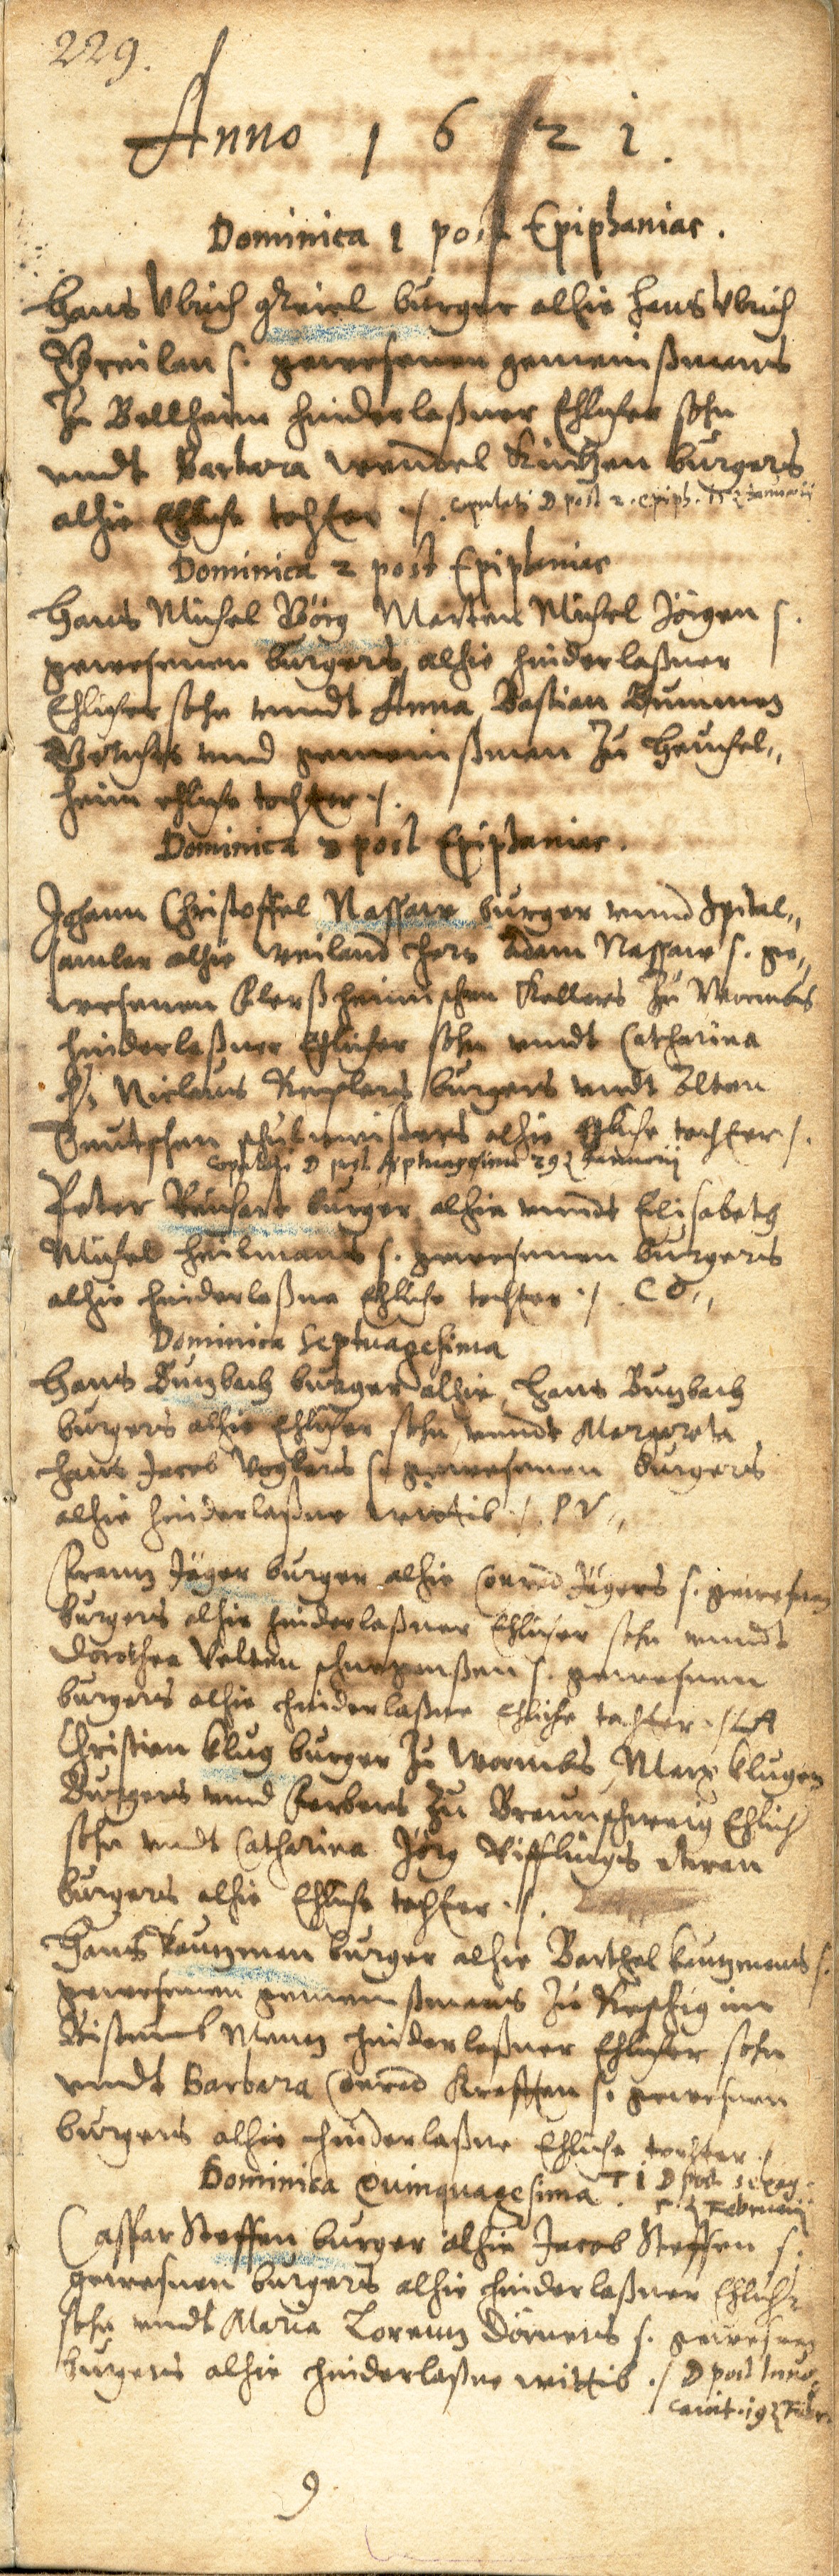 229.
Anno 1621.
Dominica 1 post Epiphaniae.
Hans Ulrich burger alhie Hans Ulrich
s. gewesenen gemeinßmans
Zu Bellheim hinderlaßner Ehlicher sohn
vndt Barbara Wendel burgers
alhie Ehliche tochter ./. Copulati D post 2. epiph. Januarii
Dominica 2 post Epiphaniae
Hans Michel Görg Marten Michel Jörgen s.
gewesenen burgers alhie hinderlaßner
Ehlicher sohn vnndt Anna Bastian
vnd gemeinßman Zu Heuchel,,
heim ehliche tochter ./.
Dominica 3 post Epiphaniae.
Johann Christoffel Nassaw burger vnnd Spital,,
samler alhie weiland Herr Adam Nassaw s. ge,,
wesenen Flerßheimischen Kellers Zu Wormbs
hinderlaßner Ehlicher sohn vnndt Catharina
H. Niclaus burgers vndt
Teutschen schulmeisters alhie Ehliche tochter ./.
Copulati D post Septuagesima 29 Januarij
Peter burger alhie vnndt Elisabeth
Michel Heilmans s. gewesenen burgers
alhie hinderlaßne Ehliche tochter ./. CO,,
Dominica Septuagesima
Hans Butzbach burger alhie Hans Butzbach
burgers alhie Ehlicher sohn vnndt Margareta
Hans Jacob Voglers s. gewesenen burgers
alhie hinderlaßne wittib ./. PV,,
Frantz Jäger burger alhie Conrad Jägers s. gewesnen
burgers alhie hinderlaßner Ehlicher sohn vnndt
Dorothea Velten s. gewesnen
burgers alhie hinderlaßne Ehliche tochter ./. LA
Christian Klug burger Zu Wormbs Marx Klugen
Burgers vnnd Ferbers Zu Braunschweig Ehlich
sohn vndt Catharina Jörg
burgers alhie Ehliche tochter ./.
Hans Kautzman burger alhie Barthel Kautzmans s.
gewesenen gemeinßmans Zu im
Bistumb Mentz hinderlaßner Ehlicher sohn
vndt Barbara Conrad Krafften s. gewesnen
burgers alhie hinderlaßne Ehliche tochter ./
Dominica Quinquagesima. D post sexag.
Februarij
Caspar Steffen burger alhie Jacob Steffen s.
gewesnen burgers alhie hinderlaßner Ehlicher
sohn vndt Maria Lorentz Dörners s. gewesnen
burgers alhie hinderlaßne wittib ./ D post Invo,,
cavit. 19 Febr.
9